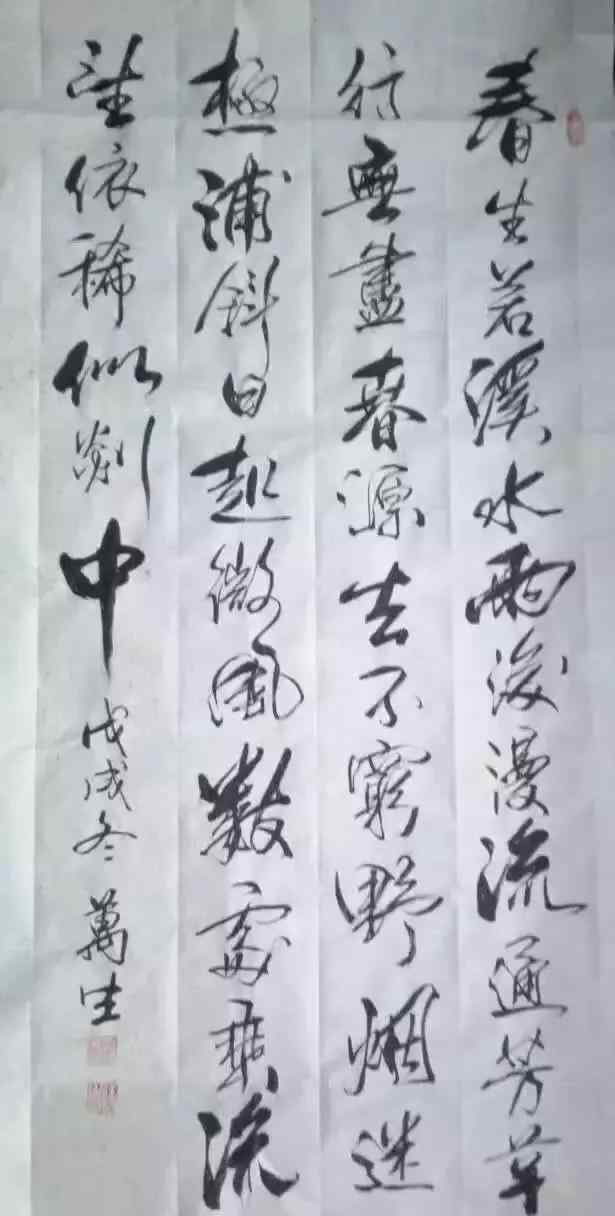 春生若溪水雨後漫流通芳草
行無盡春源去不窮野烟迷
極浦斜日起微風數處乘流
望依稀似剡中戊戌冬萬生